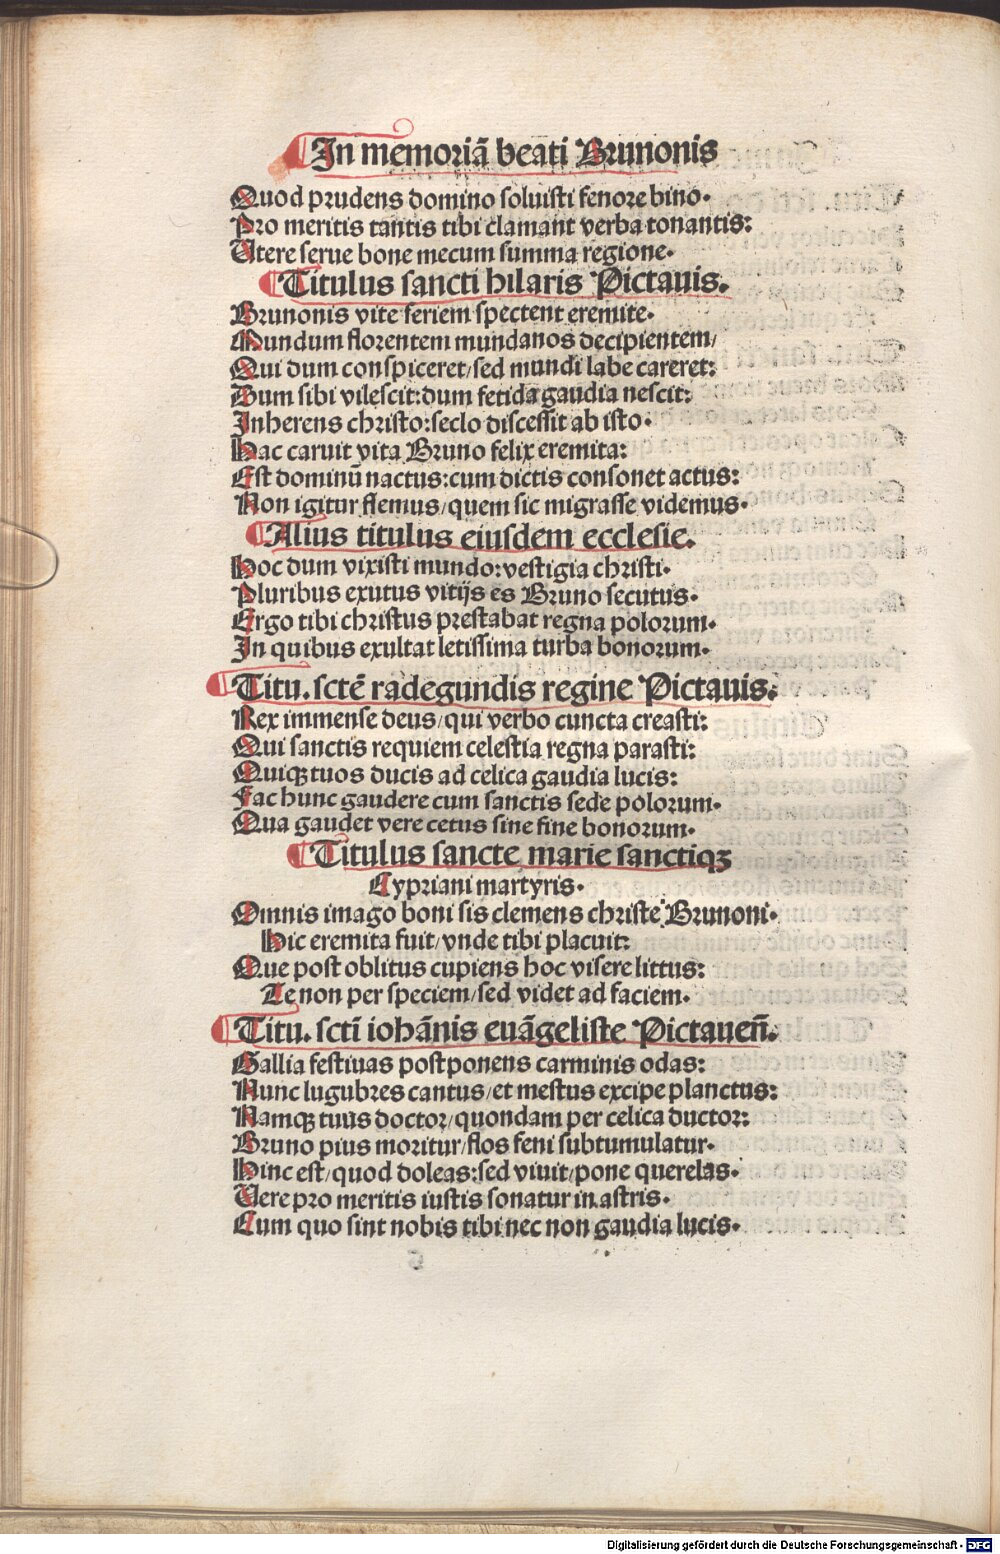 In memoriā beati Brunonis
Quod prudens domino soluisti fenore bino.
Pro meritis tantis tibi clamant verba tonantis:
Utere serue bone mecum summa regione.
Titulus sancti hilaris Pictauis.
Brunonis vite seriem spectent eremite.
Mundum florentem mundanos decipientem/
Qui dum conspiceret/sed mundi labe careret:
Dum sibi vilescit:dum fetida gaudia nescit:
Inherens christo:seclo discessit ab isto.
Hac caruit vita Bruno felix eremita:
Est dominū nactus:cum dictis consonet actus:
Non igitur flemus/quem sic migrasse videmus.
Alius titulus eiusdem ecclesie.
Hoc dum vixisti mundo:vestigia christi.
Pluribus exutus vitijs es Bruno secutus.
Ergo tibi christus prestabat regna polorum.
In quibus exultat letissima turba bonorum.
Titu. sctē radegundis regine Pictauis.
Rex immense deus/qui verbo cuncta creasti:
Qui sanctis requiem celestia regna parasti:
Quiqꝫ tuos ducis ad celica gaudia lucis:
Fac hunc gaudere cum sanctis sede polorum.
Qua gaudet vere cetus sine fine bonorum.
Titulus sancte marie sanctiqꝫ
Cypriani martyris.
Omnis imago boni sis clemens christe Brunoni.
Hic eremita fuit/vnde tibi placuit:
Que post oblitus cupiens hoc visere littus:
Te non per speciem/sed videt ad faciem.
Titu. sctī iohānis euāgeliste Pictaueñ.
Gallia festiuas postponens carminis odas:
Nunc lugubres cantus/et mestus excipe planctus:
Namqꝫ tuus doctor/quondam per celica ductor:
Bruno pius moritur/flos feni subtumulatur.
Hinc est/quod doleas:sed viuit/pone querelas.
Vere pro meritis iustis sonatur in astris.
Cum quo sint nobis tibi nec non gaudia lucis.
Digitalisierung gefördert durch die Deutsche Forschungsgemeinschaft - DFG